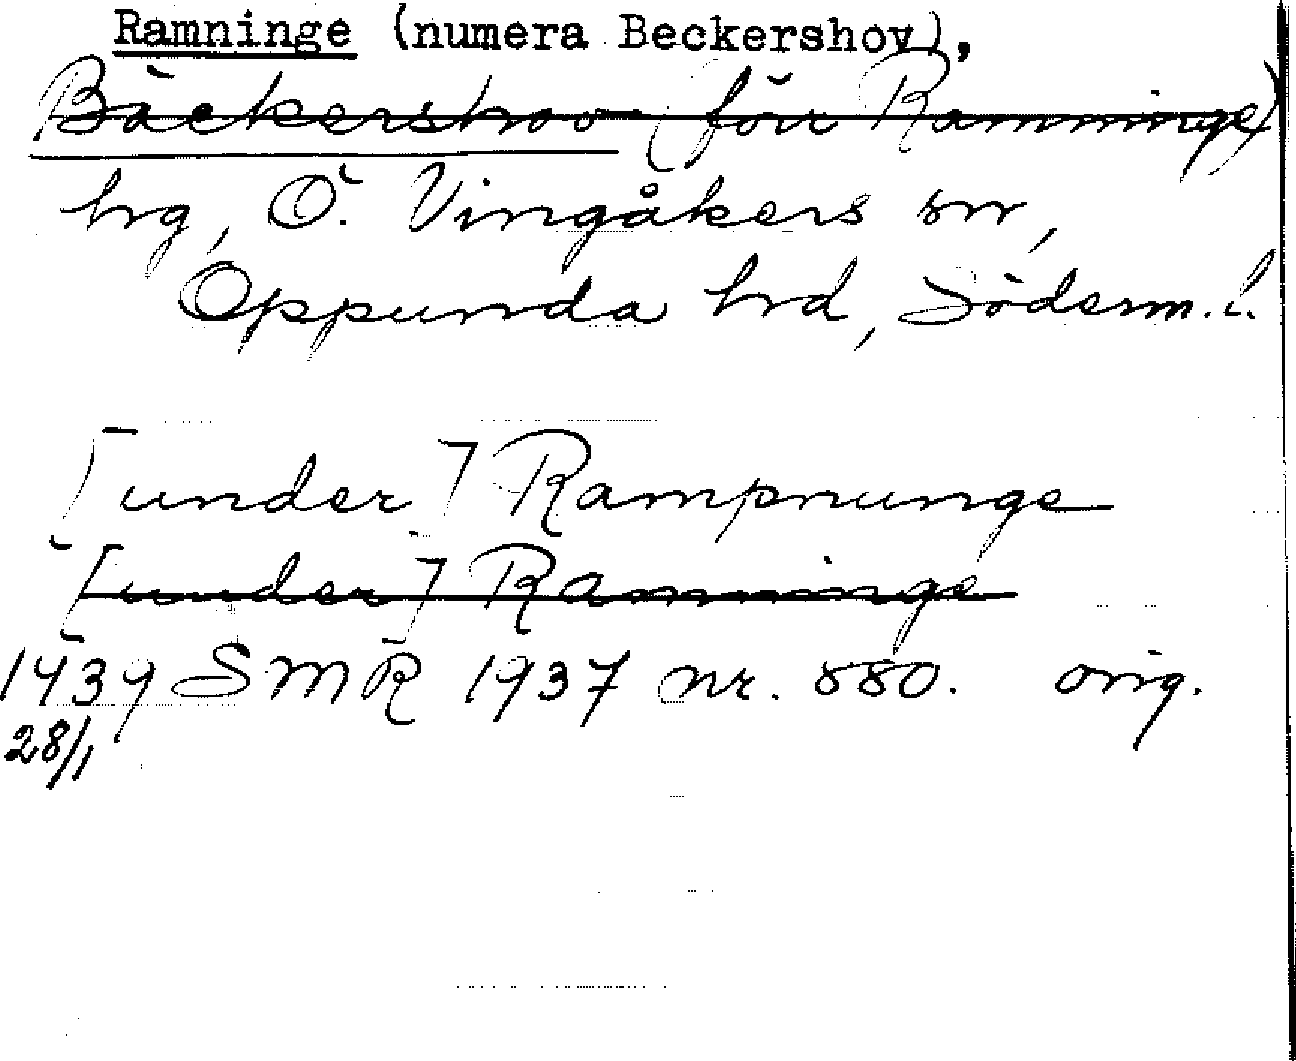 Ramninge (numera Beckershov),
Bäckershov (förr Ramninge)
hrg, Ö. Vingåkers sn,
Oppunda hrd, Söderm. l.
[under] Rampnunge
[under] Ramninge
1439 SMR 1937 nr. 880. orig.
28/1